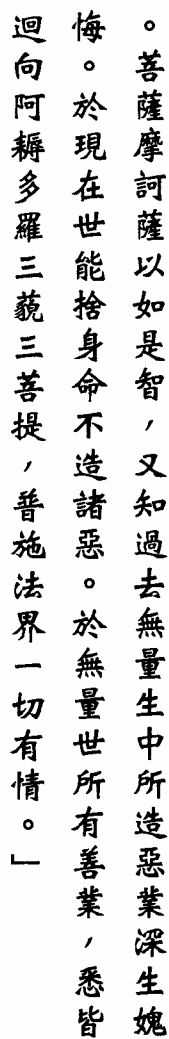 。菩薩摩訶薩以如是智，又知過去無量生中所造惡業深生媿
悔。於現在世能捨身命不造諸惡。於無量世所有善業，悉皆
迴向阿耨多羅三藐三菩提，普施法界一切有情。」